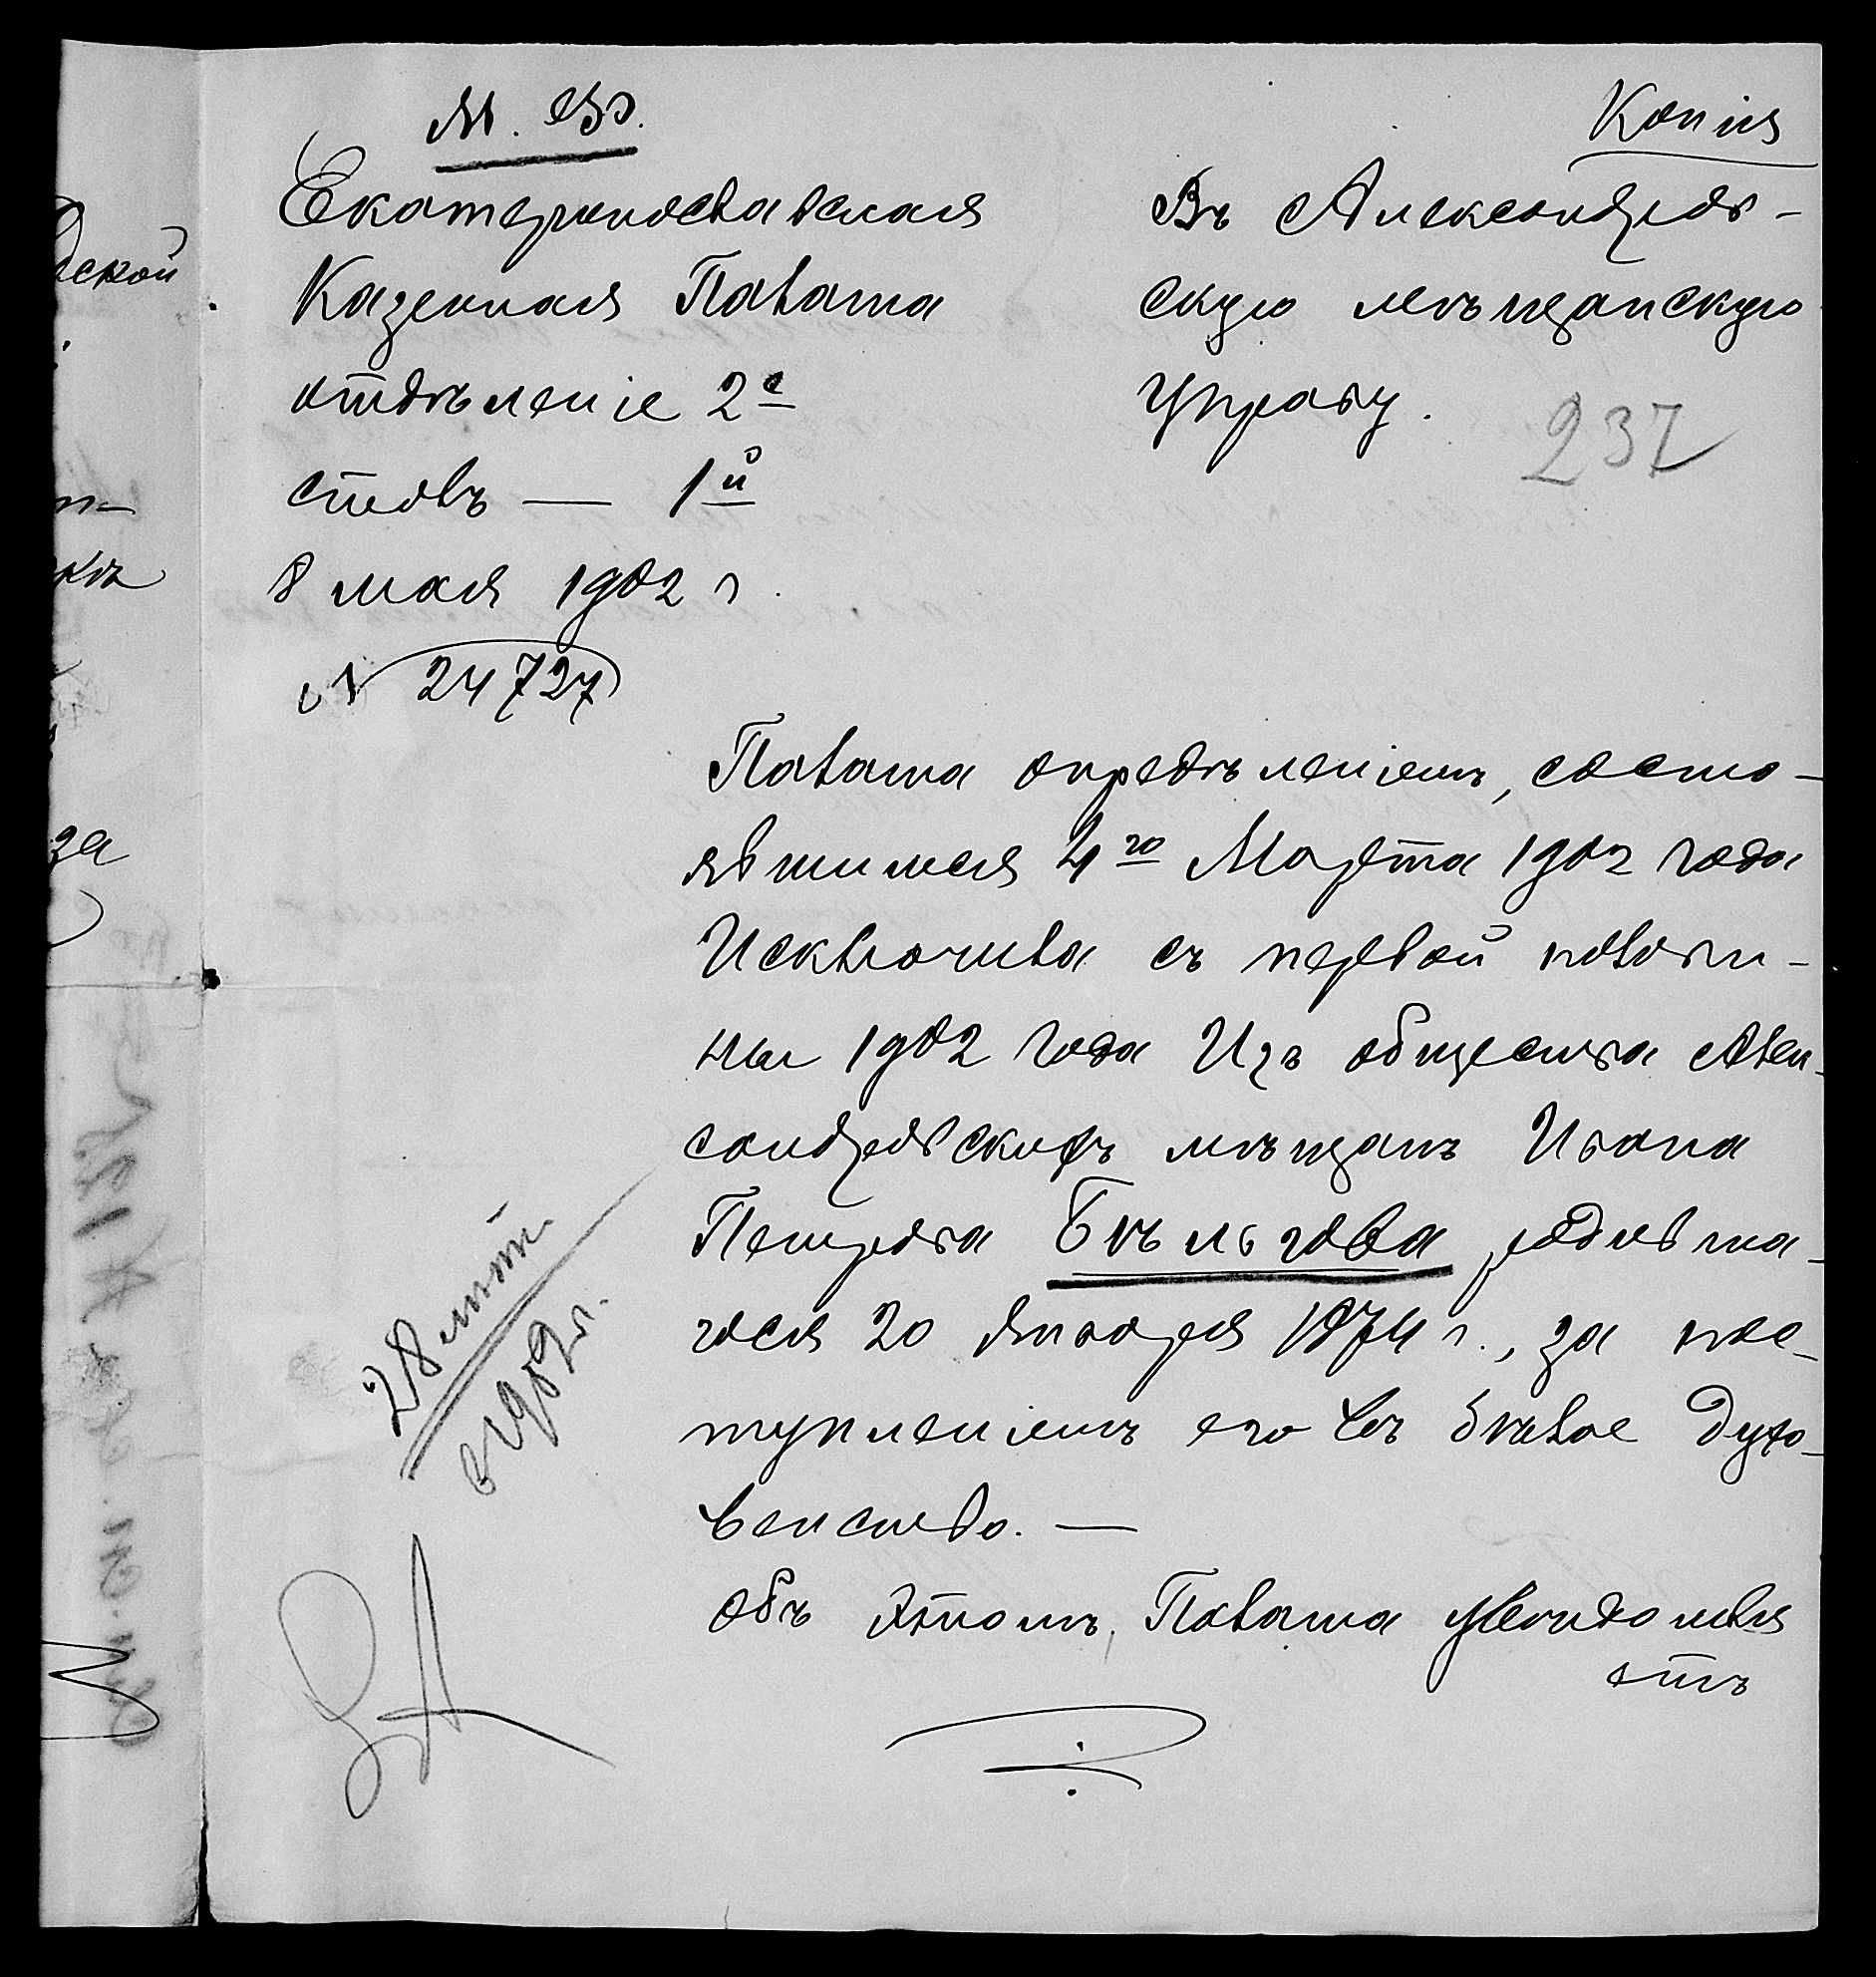 М. вз.
Копія
Екатеринославская
Казенная Палата
отдѣленіе 2е
столъ — 1й
8 мая 1902 г.
№ 24727
Въ Александров-
скую мѣщанскую
Управу.
237
Палата опредѣленіемъ, состо-
явшимся 4го Марта 1902 года
Исключила съ первой полови-
ны 1902 года Изъ общества Алек-
сандровскихъ мѣщанъ Ивана
Петрова Бѣльгова родивша-
гося 20 Января 1874 г., за пос-
тупленіемъ его въ бѣлое Духо-
венство. —
Объ этомъ, Палата увѣдомля
етъ
28
1902г.
ской
за